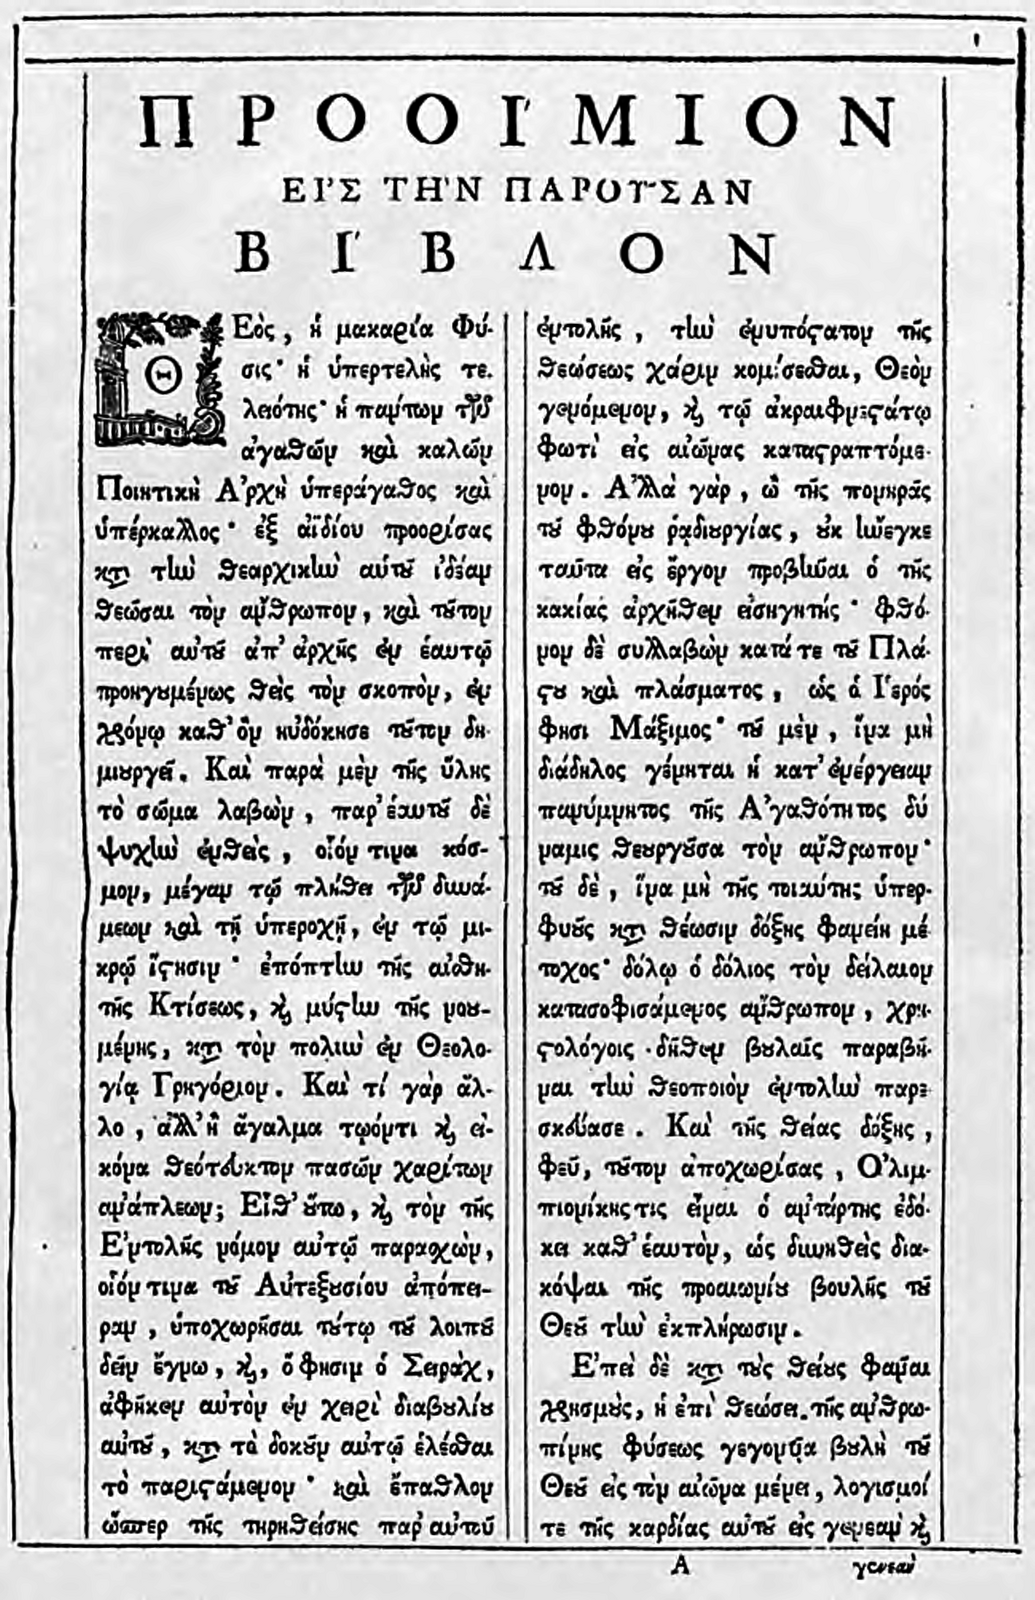 ΠΡΟΟΊΜΙΟΝ
ΕΙ᾽Σ ΤΗ᾽Ν ΠΑΡΟΥ͂ΣΑΝ
ΒΊΒΛΟΝ
ΘΕὸς, ἡ μακαρία Φύ-
σις· ἡ ὑπερτελὴς τε-
λειότης· ἡ πάντων τῶν
ἀγαθῶν καὶ καλῶν
Ποιητικὴ Ἀρχὴ ὑπεράγαθος καὶ
ὑπέρκαλλος· ἐξ ἀϊδίου προορίσας
κατὰ τὴν θεαρχικὴν αὑτοῦ ἰδέαν
θεῶσαι τὸν ἄνθρωπον, καὶ τοῦτον
περὶ αὐτοῦ ἀπ' ἀρχῆς ἐν ἑαυτῷ
προηγουμένως θεὶς τὸν σκοπὸν, ἐν
χρόνῳ καθ' ὃν ηὐδόκησε τοῦτον δη-
μιουργεῖ. Καὶ παρὰ μὲν τῆς ὕλης
τὸ σῶμα λαβὼν, παρ' ἑαυτοῦ δὲ
ψυχὴν ἐνθεὶς, οἷόν τινα κόσ-
μον, μέγαν τῷ πλήθει τῶν δυνά-
μεων καὶ τῇ ὑπεροχῇ, ἐν τῷ μι-
κρῷ ἵστησιν· ἐπόπτην τῆς αἰσθη-
τῆς Κτίσεως, καὶ μύστην τῆς νοου-
μένης, κατὰ τὸν πολὺν ἐν Θεολο-
γίᾳ Γρηγόριον. Καὶ τί γὰρ ἄλ-
λο, ἀλλ' ἢ ἄγαλμα τῳόντι καὶ εἰ-
κόνα θεότευκτον πασῶν χαρίτων
ἀνάπλεων; Εἶθ' οὕτω, καὶ τὸν τῆς
Ἐντολῆς νόμον αὐτῷ παρασχὼν,
οἷόν τινα τοῦ Αὐτεξουσίου ἀπόπει-
ραν, ὑποχωρῆσαι τούτῳ τοῦ λοιποῦ
δεῖν ἔγνω, καὶ, ὅ φησιν ὁ Σειρὰχ,
ἀφῆκεν αὐτὸν ἐν χειρὶ διαβουλίου
αὐτοῦ, κατὰ τὸ δοκοῦν αὐτῷ ἑλέσθαι
τὸ παριστάμενον· καὶ ἔπαθλον
ὥσπερ τῆς τηρηθείσης παρ' αὐτοῦ
ἐντολῆς, τὴν ἐνυπόστατον τῆς
θεώσεως χάριν κομίσεσθαι, Θεὸν
γενόμενον, καὶ τῷ ἀκραιφνεστάτῳ
φωτὶ εἰς αἰῶνας καταστραπτόμε-
νον. Ἀλλὰ γὰρ, ὢ τῆς πονηρᾶς
τοῦ φθόνου ῥᾳδιουργίας, οὐκ ἤνεγκε
ταῦτα εἰς ἔργον προβῆναι ὁ τῆς
κακίας ἀρχῆθεν εἰσηγητής· φθό-
νον δὲ συλλαβὼν κατά τε τοῦ Πλά-
στου καὶ πλάσματος, ὡς ὁ Ἱερός
φησι Μάξιμος· τοῦ μὲν, ἵνα μὴ
διάδηλος γένηται ἡ κατ' ἐνέργειαν
πανύμνητος τῆς Ἀγαθότητος δύ
ναμις θεουργοῦσα τὸν ἄνθρωπον·
τοῦ δὲ, ἵνα μὴ τῆς τοιαύτης ὑπερ-
φυοῦς κατὰ θέωσιν δόξης φανείη μέ
τοχος· δόλῳ ὁ δόλιος τὸν δείλαιον
κατασοφισάμενος ἄνθρωπον, χρη-
στολόγοις δῆθεν βουλαῖς παραβῆ-
ναι τὴν θεοποιὸν ἐντολὴν παρε
σκεύασε. Καὶ τῆς θείας δόξης,
φεῦ, τοῦτον ἀποχωρίσας, Ὀλυμ-
πιονίκης τις εἶναι ὁ ἀντάρτης ἐδό-
κει καθ' ἑαυτὸν, ὡς δυνηθεὶς δια-
κόψαι τῆς προαιωνίου βουλῆς τοῦ
Θεοῦ τὴν ἐκπλήρωσιν.
Ἐπεὶ δὲ κατὰ τοὺς θείους φᾶναι
χρησμοὺς, ἡ ἐπὶ θεώσει τῆς ἀνθρω-
πίνης φύσεως γεγονυῖα βουλὴ τοῦ
Θεοῦ εἰς τὸν αἰῶνα μένει, λογισμοί
τε τῆς καρδίας αὐτοῦ εἰς γενεὰν καὶ
Α γενεὰν